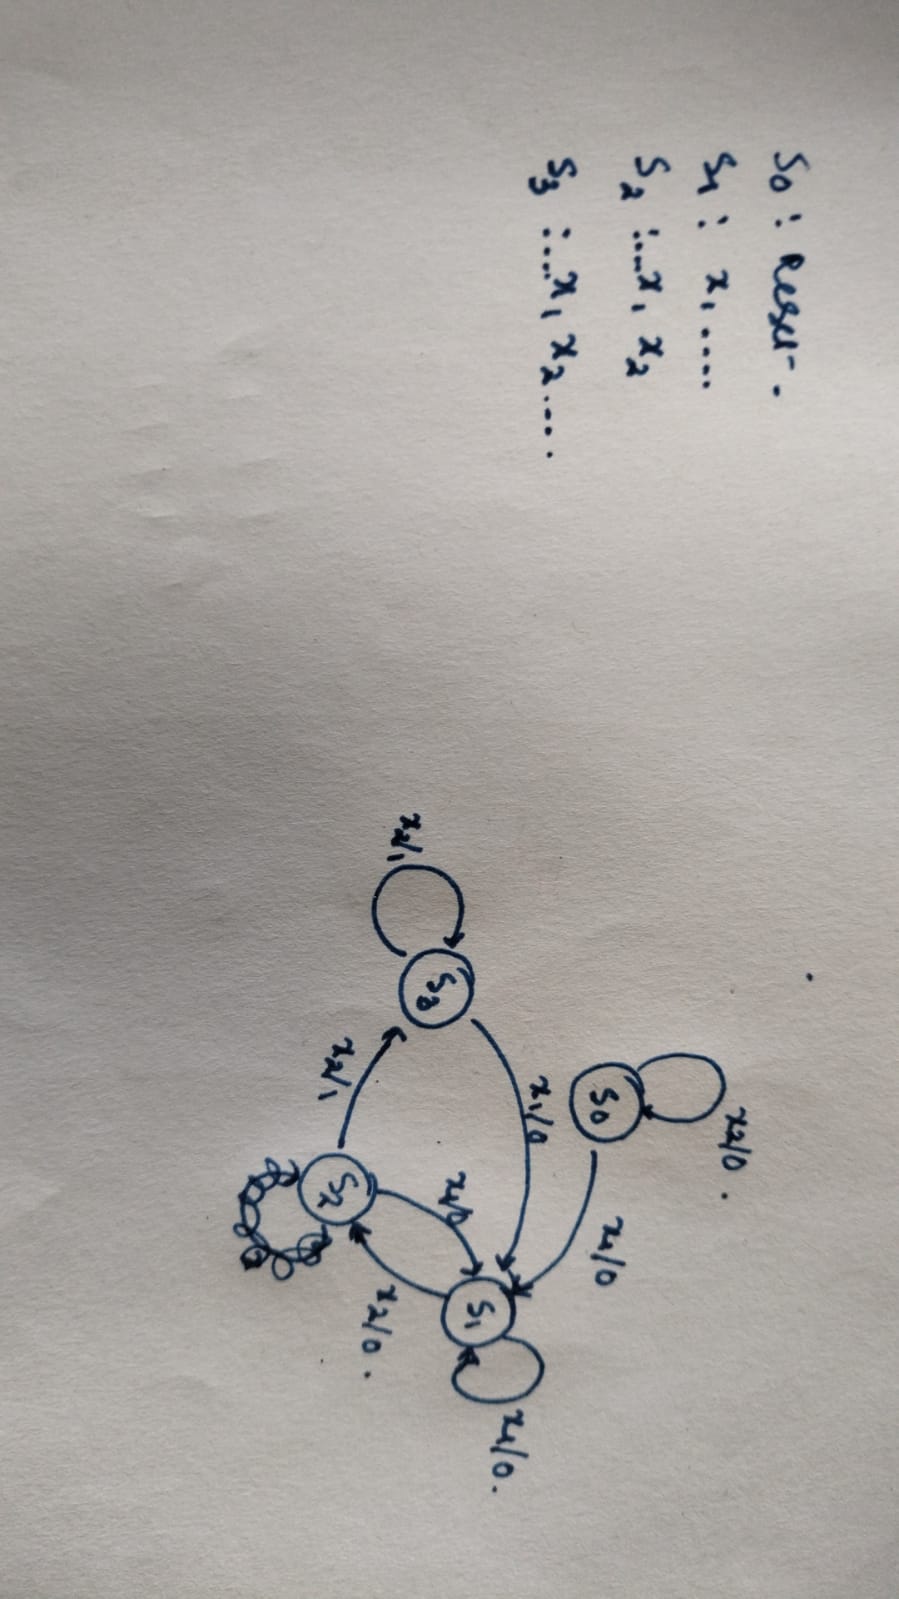 S0 : Reset.
S1 : x1 ....
S2 :...x1 x2
S3 :...x1 x2....
x2/0.
S0
x1/0
x1/0
S1
x1/0.
S3
x1/0
x2/1
x2/0.
S2
x2/1